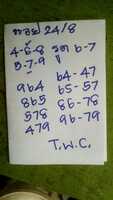 24/8
4-6-8 6-7
3-7-9
964 64-47
865 65-57
578 86-78
479 96-79
T.W.C.